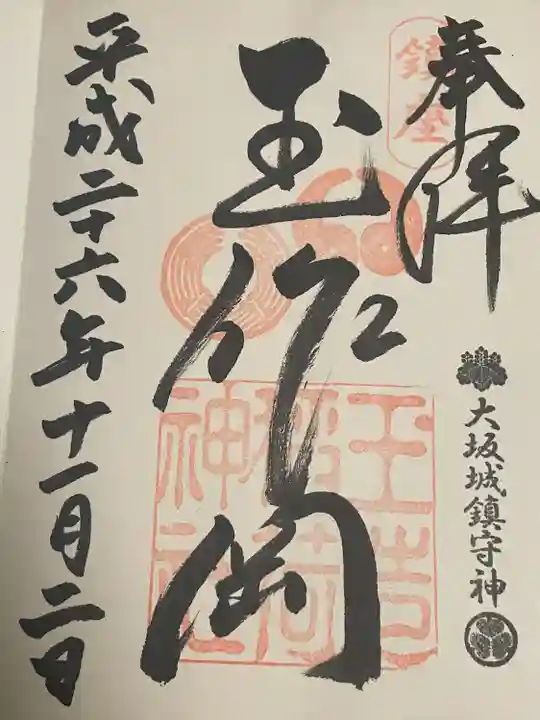 奉拝
鎮座
大坂城鎮守神
玉作岡
玉造
稲荷
神社
平成二十六年十一月二日